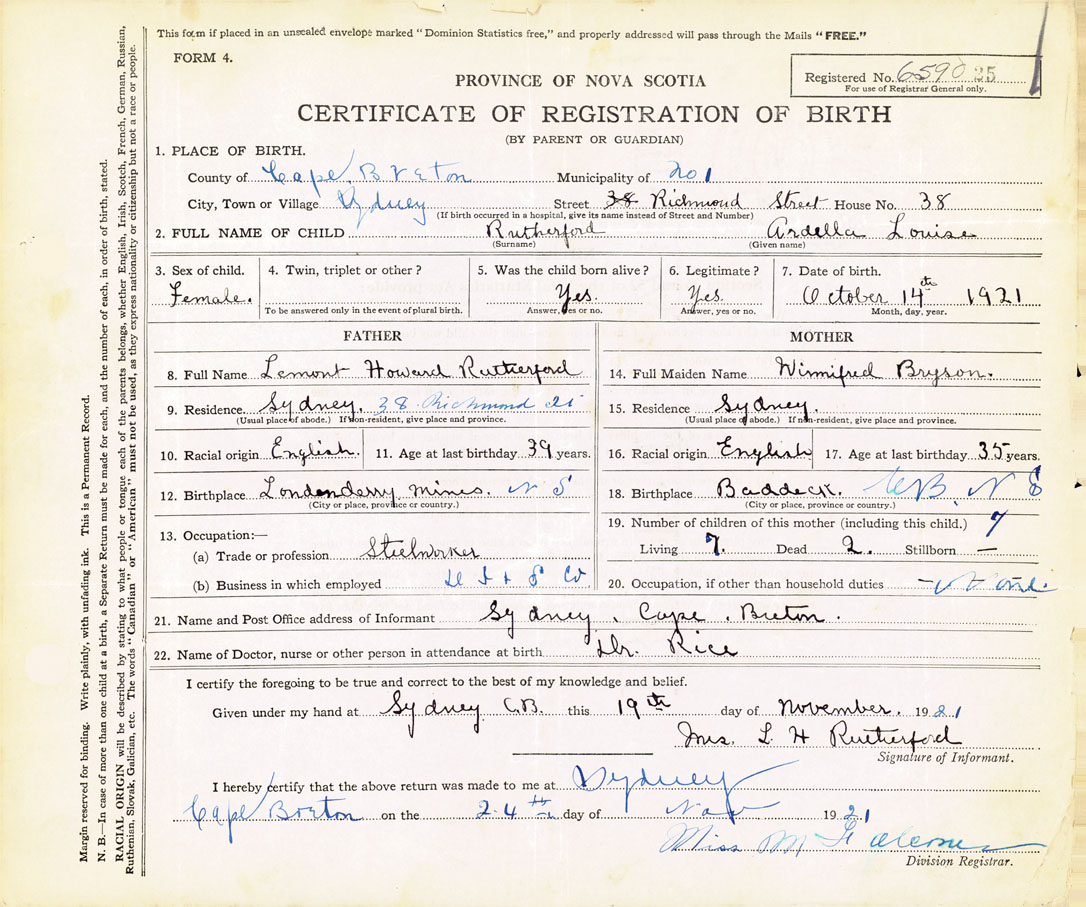 This form if placed in an unsealed envelope marked "Dominion Statistics free," and properly addressed will pass through the Mails "FREE."
FORM 4.
Registered No. 6590 25
For use of Registrar General only.
PROVINCE OF NOVA SCOTIA
CERTIFICATE OF REGISTRATION OF BIRTH
(BY PARENT OR GUARDIAN)
1. PLACE OF BIRTH.
County of Cape Breton Municipality of No 1
City, Town or Village Sydney Street 38 Richmond Street House No. 38
(If birth occurred in a hospital, give its name instead of Street and Number)
2. FULL NAME OF CHILD Rutherford Ardella Louise
(Surname) (Given name)
3. Sex of child. 4. Twin, triplet or other? 5. Was the child born alive? 6. Legitimate? 7. Date of birth.
Female. Yes. Yes. October 14th 1921
To be answered only in the event of plural birth. Answer, yes or no. Answer, yes or no. Month, day, year.
FATHER
8. Full Name Lemont Howard Rutherford
9. Residence. Sydney. 38 Richmond St
(Usual place of abode.) If non-resident, give place and province.
10. Racial origin English. 11. Age at last birthday 39 years.
12. Birthplace Londonderry mines. N S
(City or place, province or country.)
13. Occupation:—
(a) Trade or profession Steelworker
(b) Business in which employed D I & S Co
MOTHER
14. Full Maiden Name Winnifred Bryson.
15. Residence Sydney.
(Usual place of abode.) If non-resident, give place and province.
16. Racial origin English 17. Age at last birthday 35 years.
18. Birthplace Baddeck. C B. N S
(City or place, province or country.)
19. Number of children of this mother (including this child.) 9
Living 7. Dead 2. Stillborn —
20. Occupation, if other than household duties
21. Name and Post Office address of Informant Sydney, Cape, Breton.
22. Name of Doctor, nurse or other person in attendance at birth Dr. Rice
I certify the foregoing to be true and correct to the best of my knowledge and belief.
Given under my hand at Sydney C.B. this 19th day of November. 1921
Mrs. L H Rutherford
Signature of Informant.
I hereby certify that the above return was made to me at Sydney
Cape Breton on the 24th day of Nov 1921
Miss M
Division Registrar.
Margin reserved for binding. Write plainly, with unfading ink. This is a Permanent Record.
N. B.—In case of more than one child at a birth, a Separate Return must be made for each, and the number of each, in order of birth, stated.
RACIAL ORIGIN will be described by stating to what people or tongue each of the parents belongs, whether English, Irish, Scotch, French, German, Russian,
Ruthenian, Slovak, Galician, etc. The words "Canadian" or "American" must not be used, as they express nationality or citizenship but not a race or people.